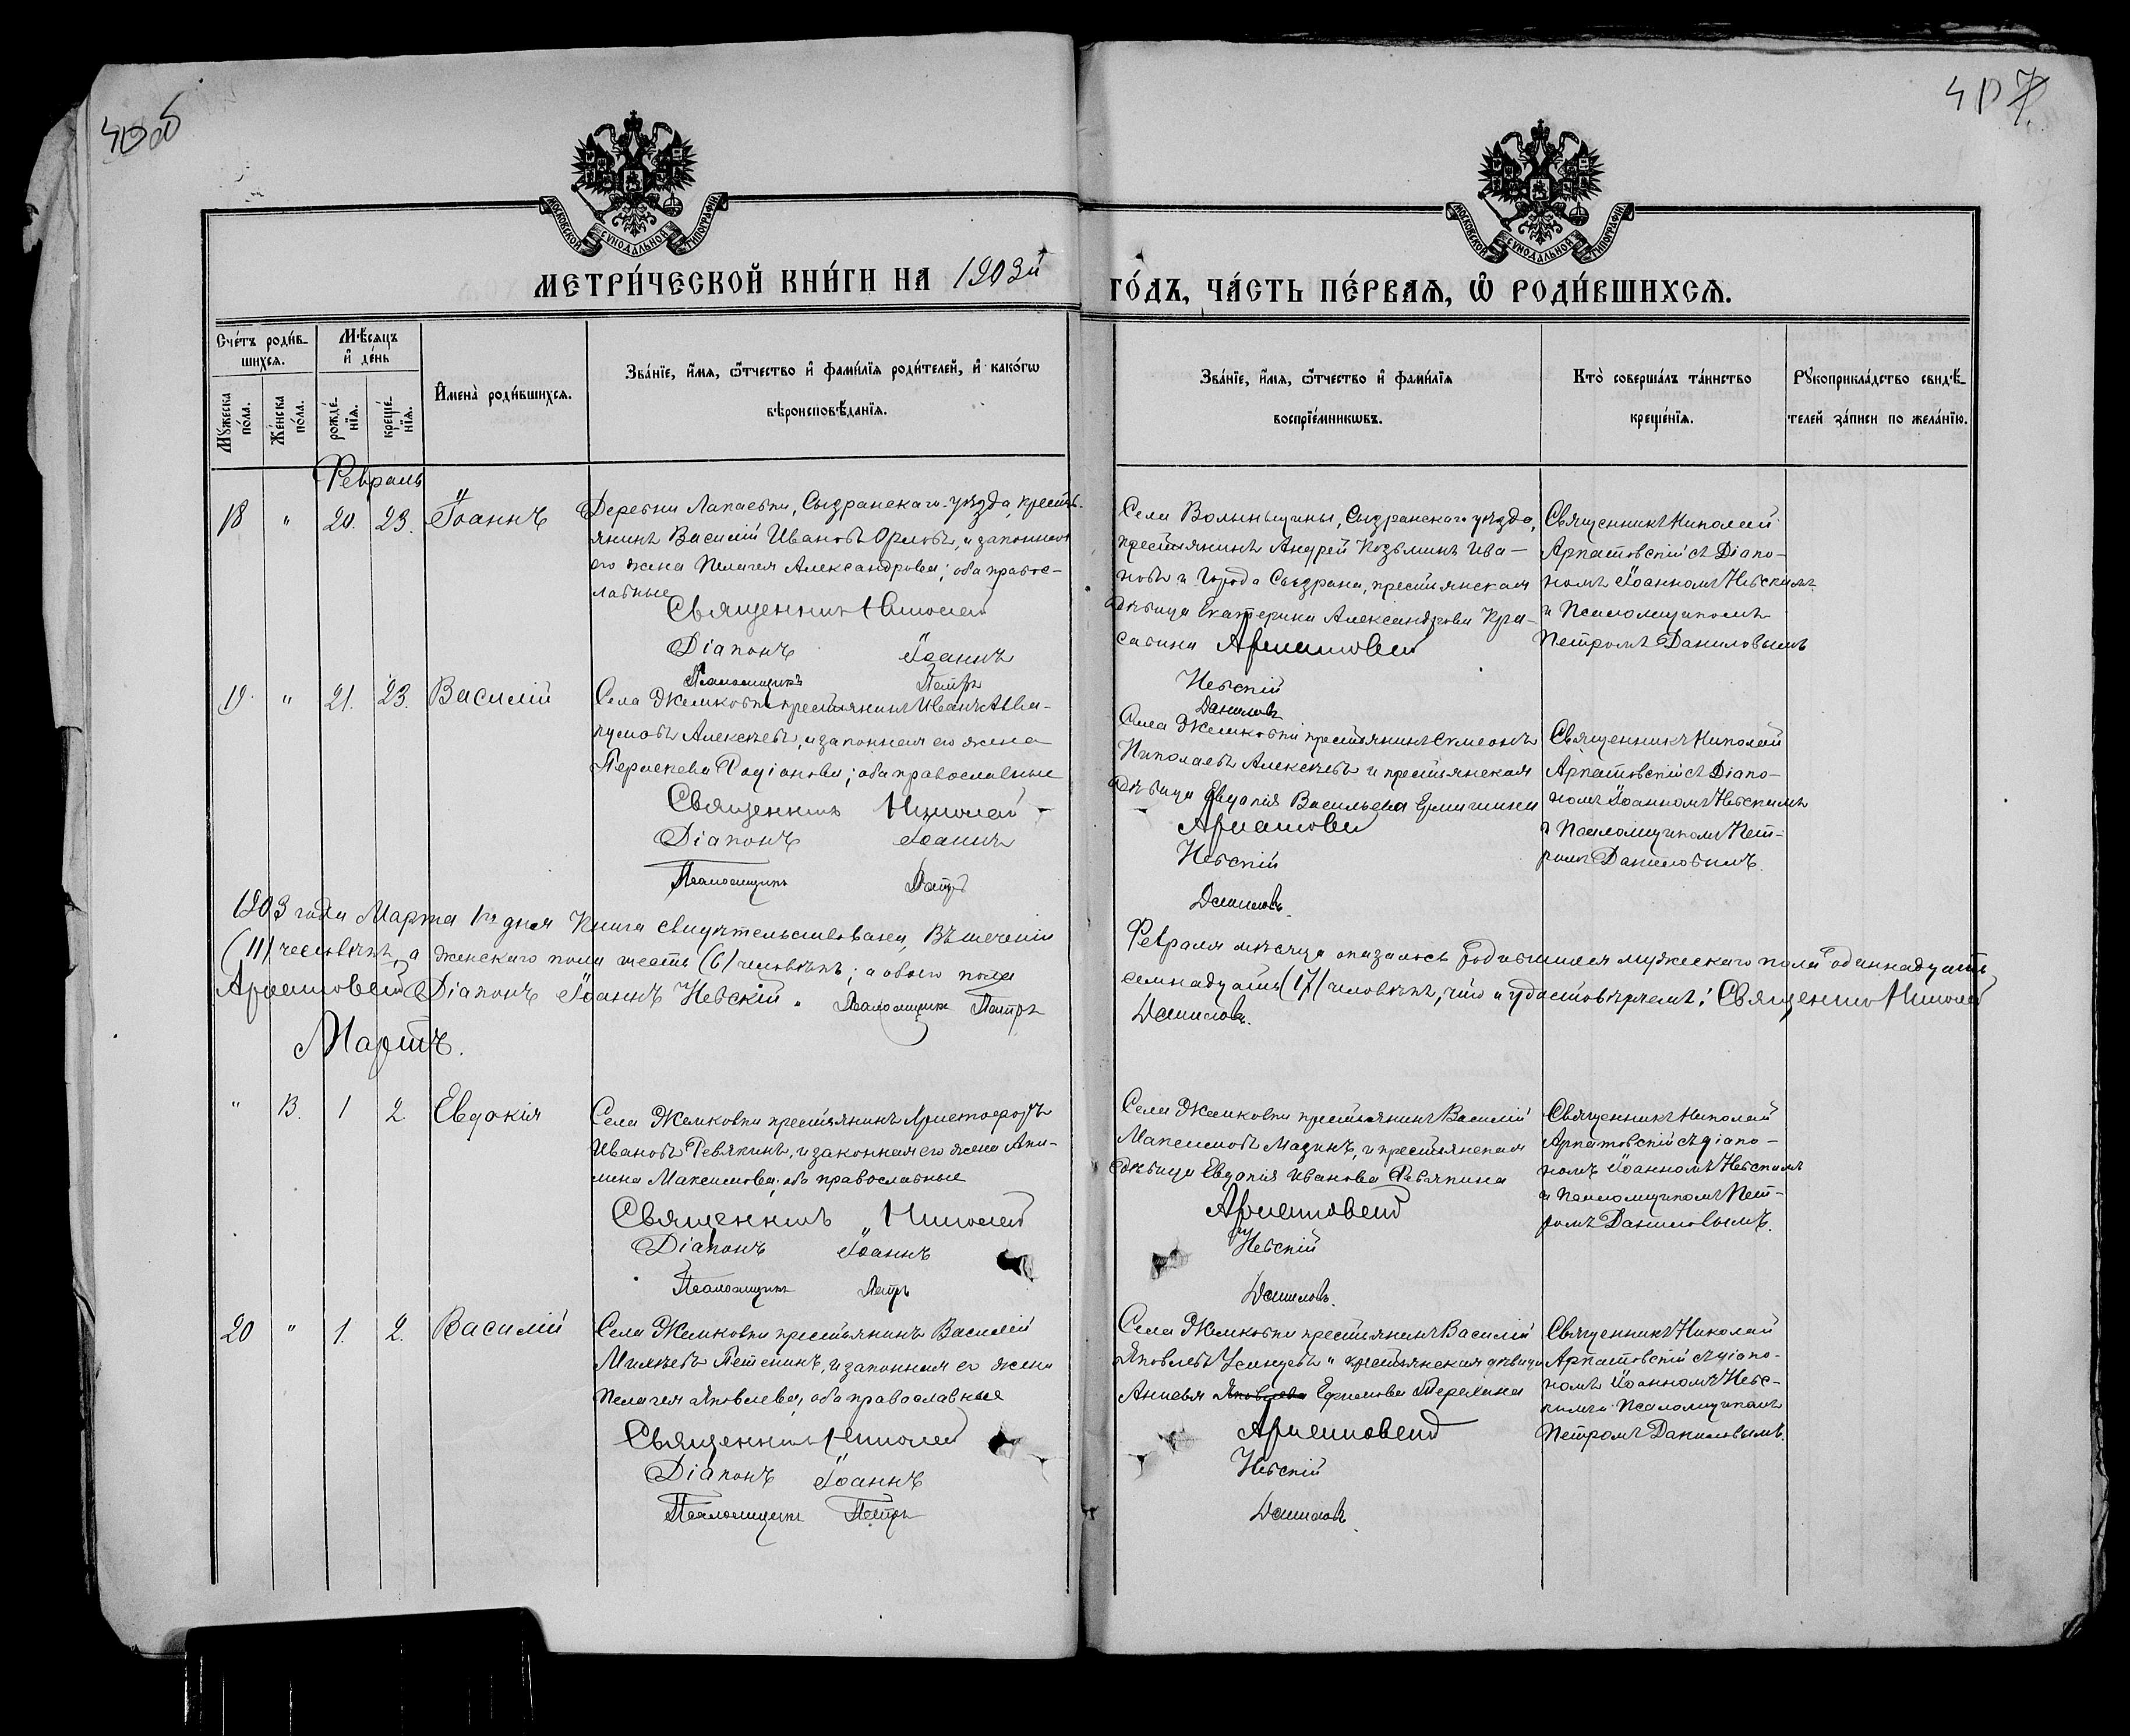 406
407
МОСКОВСКОЙ СѴНОДАЛЬНОЙ ТИПОГРАФІИ
МОСКОВСКОЙ СѴНОДАЛЬНОЙ ТИПОГРАФІИ
МЕТРИ́ЧЕСКОЙ КНИ́ГИ НА 1903й
ГО́ДЪ, ЧА́СТЬ ПЕ́РВАѦ, Ѿ РОДИ́ВШИХСѦ.
Сче́тъ роди́в-
шихсѧ.
Мꙋжеска
по́ла.
Же́нска
по́ла.
Мѣ́сѧцъ
и҆ де́нь
рожде́-
нїѧ.
креще́-
нїѧ.
И҆мена̀ роди́вшихсѧ.
Зва́нїе, и҆́мѧ, ѻ҆́тчество и҆ фами́лїѧ роди́телей, и҆ како́гѡ
вѣроисповѣ́данїѧ.
Зва́нїе, и҆́мѧ, ѻ҆́тчество и҆ фами́лїѧ
воспрїе́мникѡвъ.
Кто̀ соверша́лъ та́инство
креще́нїѧ.
Рꙋкоприкла́дство свидѣ́-
телей за́писи по жела́нїю.
Февраль
18 " 20. 23. Іоаннъ
Деревни Лапаевки, Сызранскаго уѣзда, кресть-
янинъ Василій Ивановъ Орловъ, и законная
его жена Пелагея Александрова; оба правос-
лавные
Священникъ Николай
Діаконъ Іоаннъ
Псаломщикъ Петръ
Села Волынщины, Сызранскаго уѣзда,
крестьянинъ Андрей Козьминъ Ива-
новъ и Города Сызрана, крестьянская
дѣвица Екатерина Александрова Кра-
савина Арнатовскій
Невскій
Данилов
Священникъ Николай
Арнатовскій съ Діако-
номъ Іоанномъ Невскимъ
и Псаломщикомъ
Петромъ Даниловымъ
19. " 21. 23. Василій
Села Жемковки крестьянинъ Иванъ Авва-
кумовъ Алексѣевъ, и законная его жена
Параскева Родіонова; оба православные
Священникъ Николай
Діаконъ Іоаннъ
Псаломщикъ Петръ
Села Жемковки крестьянинъ Симеонъ
Николаевъ Алексѣевъ и крестьянская
дѣвица Евдокія Васильева
Арнатовскій
Невскій
Данилов.
Священникъ Николай
Арнатовскій съ Діако-
номъ Іоанномъ Невскимъ
и Псаломщикомъ Пет-
ромъ Даниловымъ.
1903 года Марта 1го дня Книга свидѣтельствована, Въ теченіи
Февраля мѣсяца оказалось родившихся мужескаго пола одиннадцать
(11) человѣкъ, а женскаго пола шесть (6) человѣкъ; а обоего пола
семнадцать (17) человѣкъ, что и удостовѣряемъ: Священникъ Николай
Арнатовскій Діаконъ Іоаннъ Невскій. Псаломщикъ Петръ
Данилов.
Мартъ.
" 13. 1 2 Евдокія
Села Жемковки крестьянинъ
Ивановъ Ревякинъ, и законная его жена Аки-
лина Максимова, оба православные
Священникъ Николай
Діаконъ Іоаннъ
Псаломщикъ Петръ
Села Жемковки крестьянинъ Василій
Максимовъ Мазинъ, и крестьянская
дѣвица Евдокія Иванова Ревякина
Арнатовскій
Невскій
Данилов.
Священникъ Николай
Арнатовскій съ діако-
номъ Іоанномъ Невскимъ
и Псаломщикомъ Пет-
ромъ Даниловымъ.
20 " 1. 2. Василій
Села Жемковки крестьянинъ Василій
Петенинъ, и законная его жена
Пелагея Яковлева, оба православные
Священникъ Николай
Діаконъ Іоаннъ
Псаломщикъ Петръ
Села Жемковки крестьянинъ Василій
Яковлевъ и крестьянская дѣвица
Анисья Яковлева Ефимова
Арнатовскій
Невскій
Данилов.
Священникъ Николай
Арнатовскій съ діако-
номъ Іоанномъ Невс-
кимъ и Псаломщикомъ
Петромъ Даниловымъ.